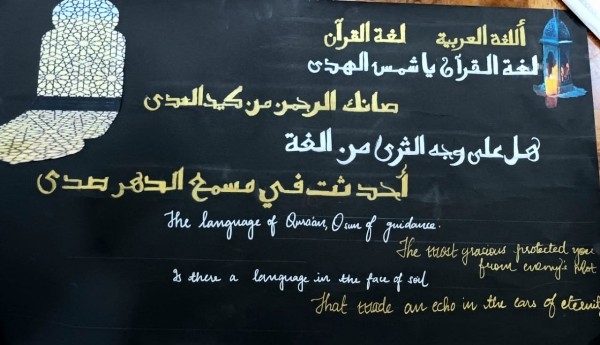 أللغة العربية لغة القرآن
لغة القرآن يا شمس الهدى
صانك الرحمن من كيد العدى
هل على وجه الثرى من الغة
أحدثت في مسمع الدهر صدى
The language of Quraan, O sun of guidance.
The most gracious protected you
from enemy's plot
Is there a language in the face of soil
That made an echo in the ears of eternity